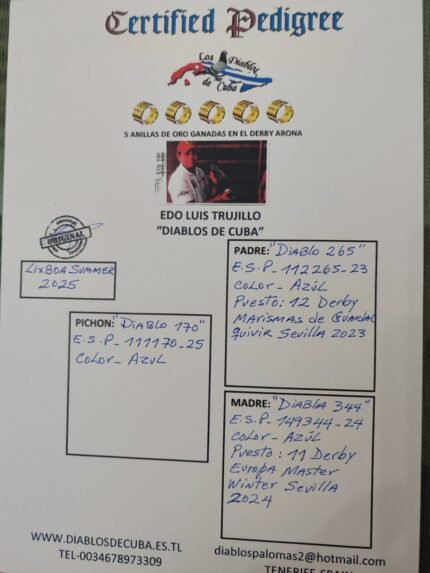 Certified Pedigree
Los Diablos
de Cuba
5 ANILLAS DE ORO GANADAS EN EL DERBY ARONA
EDO LUIS TRUJILLO
"DIABLOS DE CUBA"
ORIGINAL
LIXBOA SUMMER
2025
PICHON: "DIABLO 170"
E.S.P- 111170-25
COLOR- AZUL
PADRE: "DIABLO 265"
E.S.P- 112265-23
COLOR- AZÚL
Puesto: 12 Derby
MARISMAS de GUADAL
quivir Sevilla 2023
MADRE: "DIABLA 344"
E.S.P- 149344-24
COLOR- AZÚL
Puesto: 11 Derby
Europa MASTER
Winter Sevilla
2024
WWW.DIABLOSDECUBA.ES.TL
TEL-0034678973309
diablospalomas2@hotmail.com
TENERIFE-SPAIN